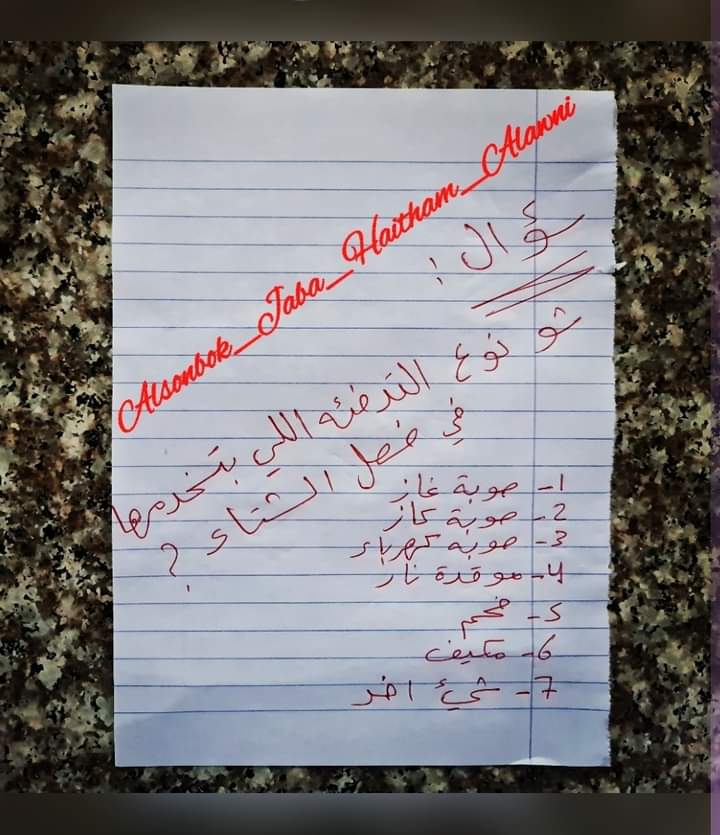 Alsonbok_Jaba_Haitham_Alawni
سؤال :
شو نوع التدفئه اللي بتخدمها
في فصل الشتاء ؟
1- صوبة غاز
2- صوبة كاز
3- صوبه كهرباء
4- موقدة نار
5- فحم
6- مكيف
7- شيئ اخر